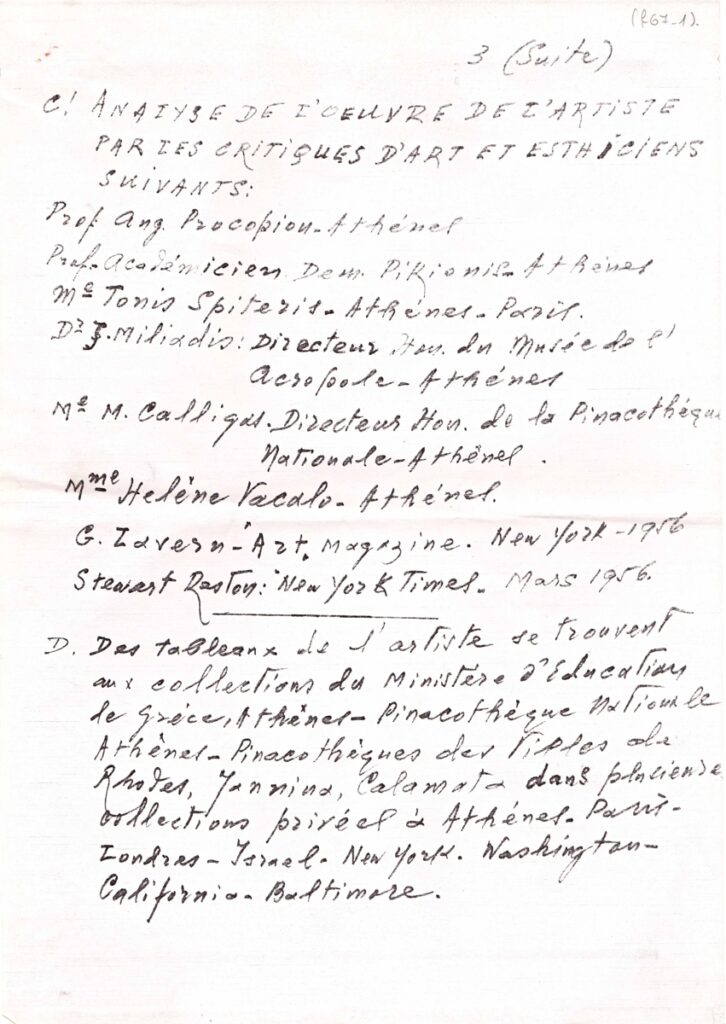 (R67-1).
3 (Suite)
C! ANALYSE DE L'OEUVRE DE L'ARTISTE
PAR LES CRITIQUES D'ART ET ESTHICIENS
SUIVANTS:
Prof Ang. Procopiou-Athénes
Prof-Académicien Dem. Pikionis-Athénes
Me Tonis Spiteris-Athénes-Paris.
Dr J. Miliadis: Directeur Hon. du Musée de l'
Acropole-Athénes
Me M. Calligas. Directeur Hon. de la Pinacothéque
Nationale-Athénes.
Mme Heléne Vacalo-Athénes.
G. Lavern-"Art. Magazine. New York-1956
Stewart Reston:"New York Times- Mars 1956.
D. Des tableaux de l'artiste se trouvent
aux collections du Ministére d'Education
de Gréce, Athénes-Pinacothéque Nationale
Athénes-Pinacothéques des Villes de
Rhodes, Jannina, Calamata dans plucieurs
collections privées à Athénes-Paris-
Londres-Israel-New York. Washington-
California-Baltimore.